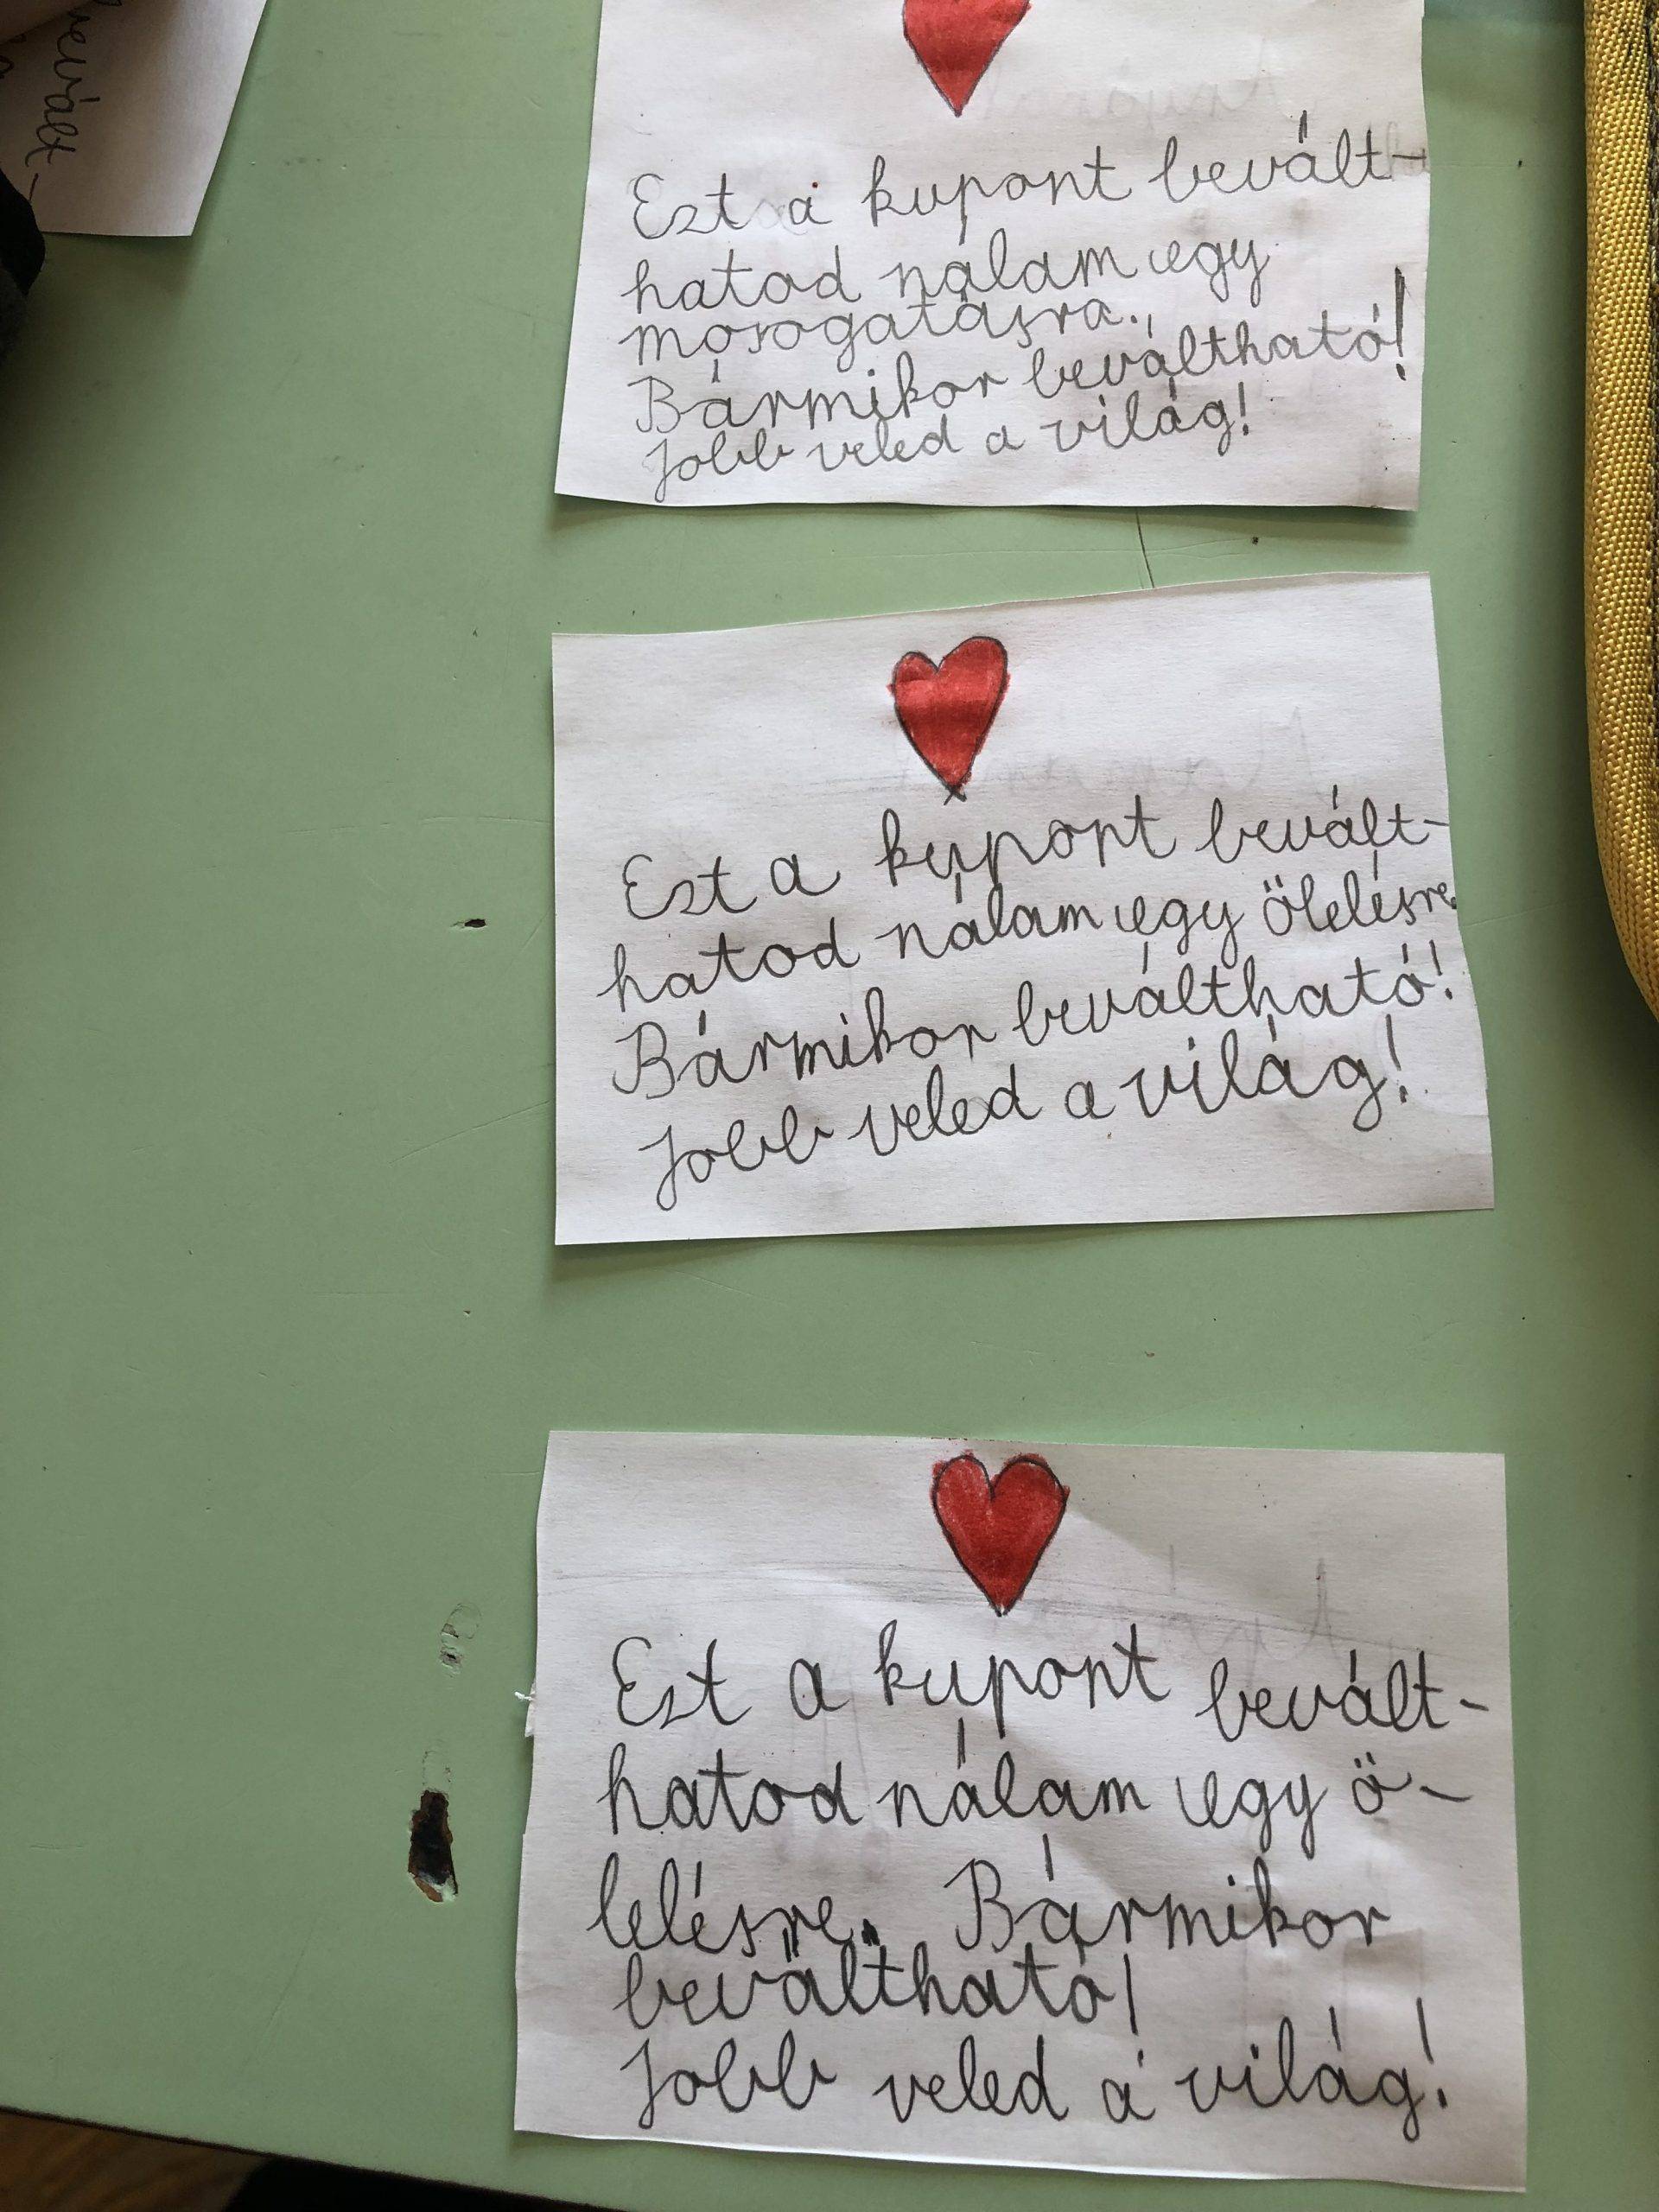 evált-
Ezt a kupont bevált-
hatod nálam egy
mosogatásra.
Bármikor beváltható!
Jobb veled a világ!
Ezt a kupont bevált-
hatod nálam egy ölelésre.
Bármikor beváltható!
Jobb veled a világ!
Ezt a kupont bevált-
hatod nálam egy ö-
lelésre. Bármikor
beváltható!
Jobb veled a világ!